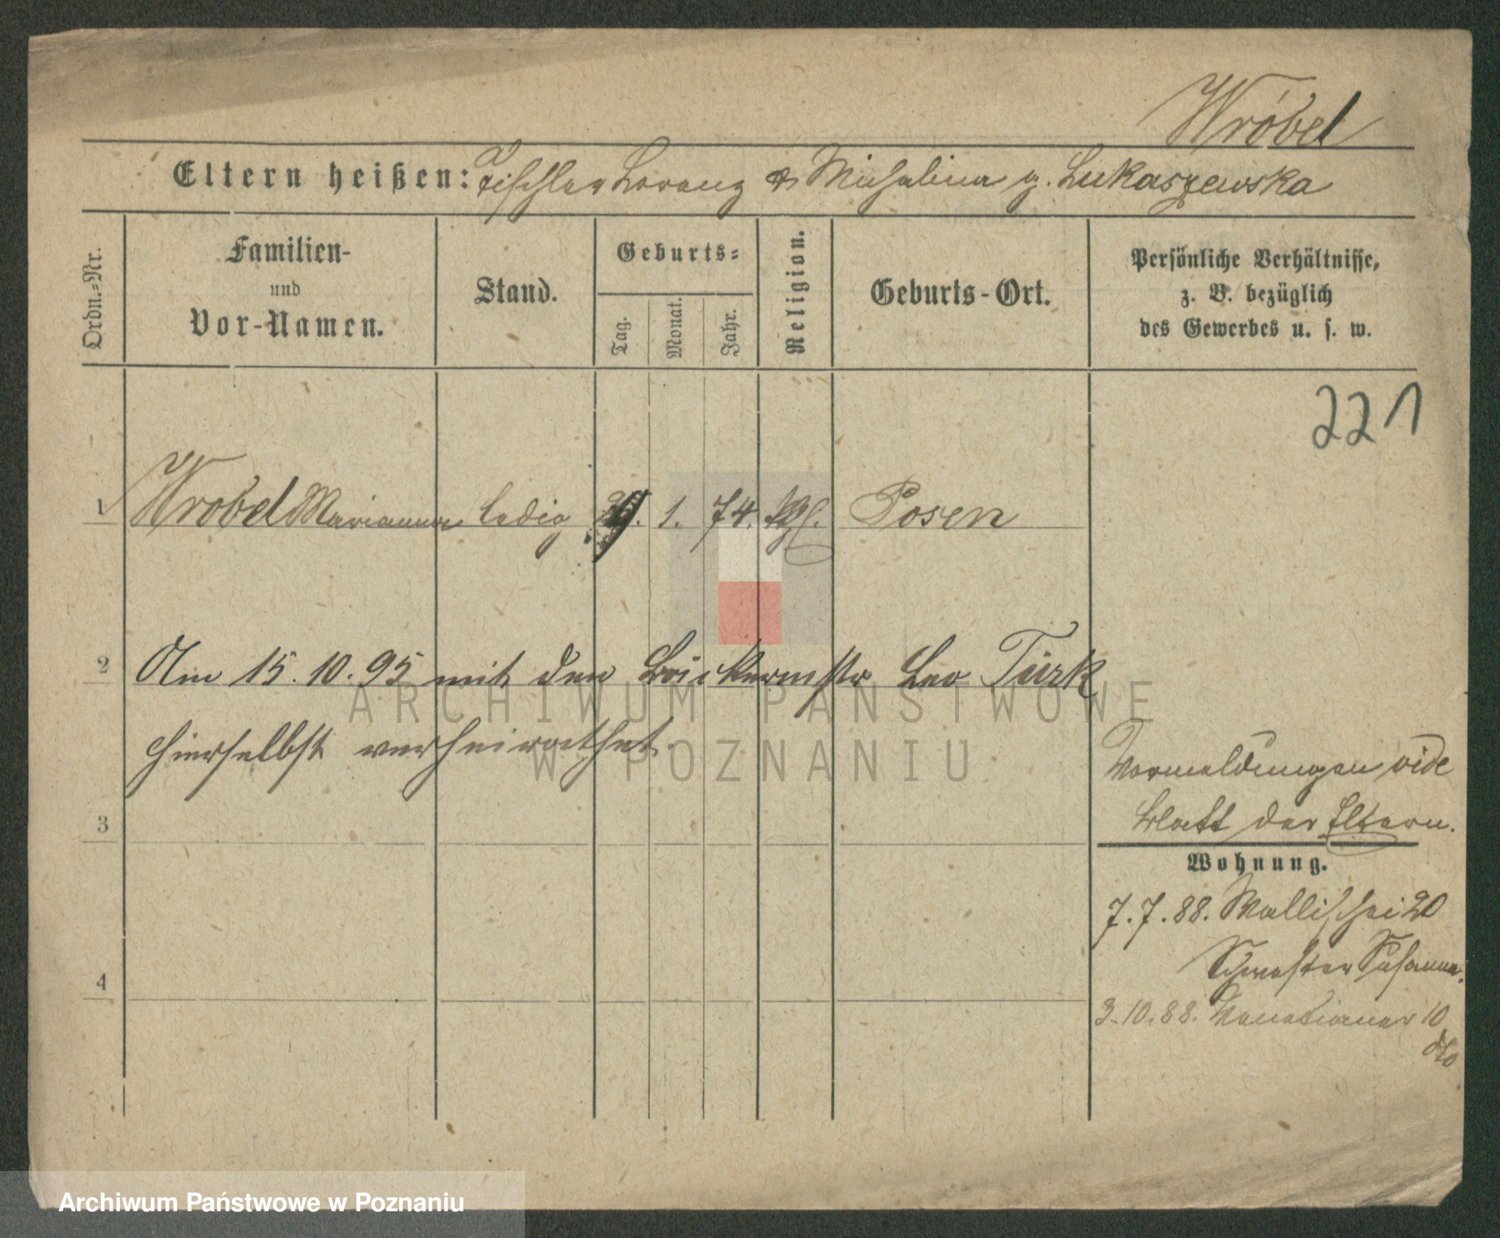 Wróbel
Eltern heißen: Tischler Lorenz & Michalina g. Lukaszewska
Ordn.-Nr.
Familien-
und
Vor-Namen.
Stand.
Geburts-
Tag.
Monat.
Jahr.
Religion.
Geburts-Ort.
Persönliche Verhältnisse,
z. B. bezüglich
des Gewerbes u. s. w.
221
1 Wrobel Marianna ledig 1. 74. Posen
2 Am 15.10.95 mit dem Bäckermstr Leo Türk
hierselbst verheirathet.
ARCHIWUM PAŃSTWOWE
W POZNANIU
Vormeldungen vide
Blatt der Eltern.
3
Wohnung.
7.7.88. Wallischei 20
Schwester Susanna.
4
3.10.88. Venetianer 10
dto
Archiwum Państwowe w Poznaniu